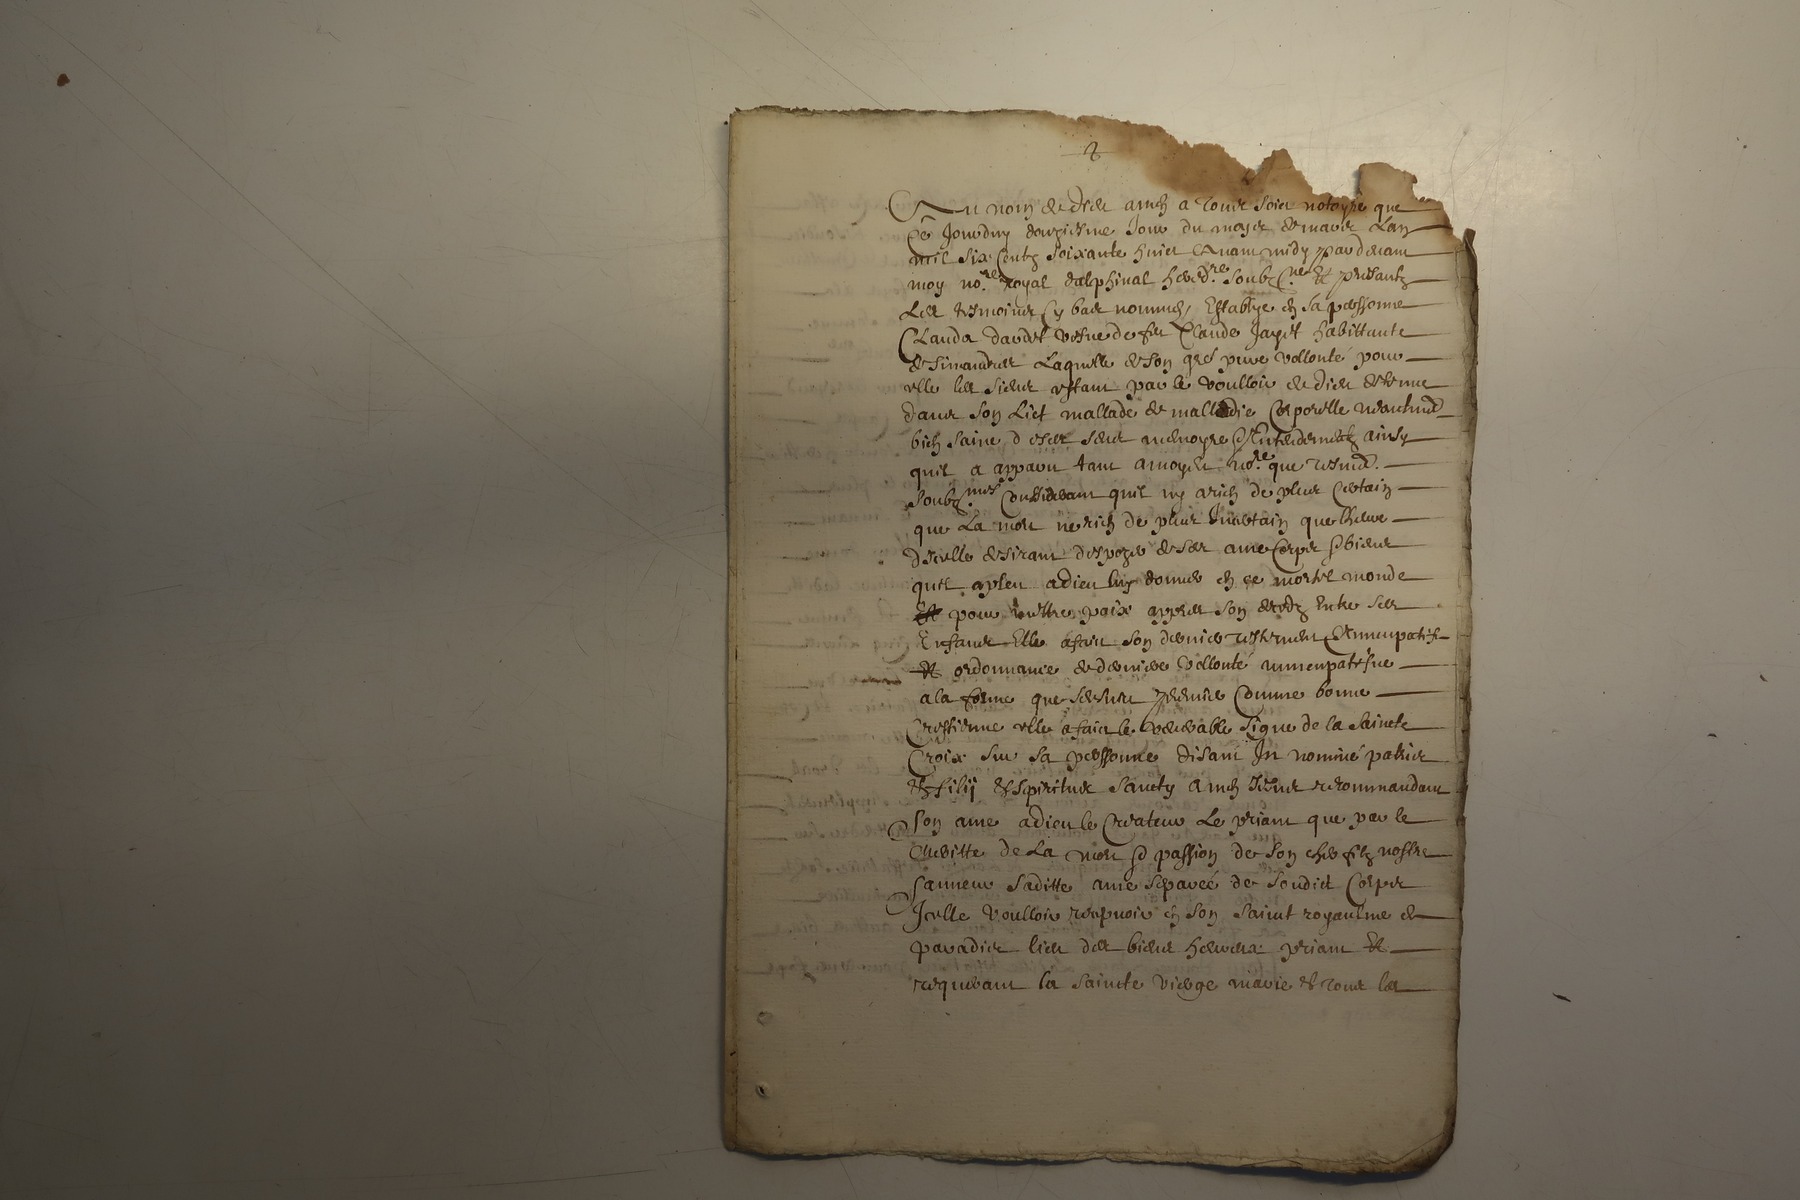 2
Au nom de dieu amen a tous soict notoyre que
Ce Jourdhuy douziesme Jour du moys de mars Lan
mil six centz soixante huict avant midy par devant
moy no.re royal dalphinal hered.re soubz.ne et presantz
Les tesmoins cy bas nommes, Establye en sa personne
Clauda daudet vefve de feu Claude Jayet habittante
de simandres Laquelle de son gres pure vollonté pour
elle les siens estant par le voulloir de dieu detenue
dans son Lict mallade de malladie Corporelle neantmed
bien saine de ses sens memoyre & Entendement ainsy
quil a apparu tant a moydit no.re que tesmd.
Soubz.nes Considerant quil ny arien de plus Certain
que La mort ne rien de plus Incertain que lheure
dicelle desirant dispozer de ses ame Corps & biens
quil apleu adieu luy donner en ce mortel monde
Et pour mettre paix appres son deceds Entre ses
Enfans Elle afait son dernier testement Nuncupatif
Et ordonnance de derniere vollonté nuncupatifve
a la forme que sensuit premier Comme bonne
Crestienne elle a faict le venerable signe de la saincte
Croix sur sa personne disant In nominé patris
et filij et spiritus sancty amen Jesus recommandant
Son ame adieu le Createur Le priant que par le
meritte de La mort & passion de son cher filz nostre
sauveur saditte ame separée de sondict Corps
Icelle voulloir recepvoir en son sainct royaulme de
paradis lieu des biens heureux priant Et
requerant la saincte vierge marie et tous les